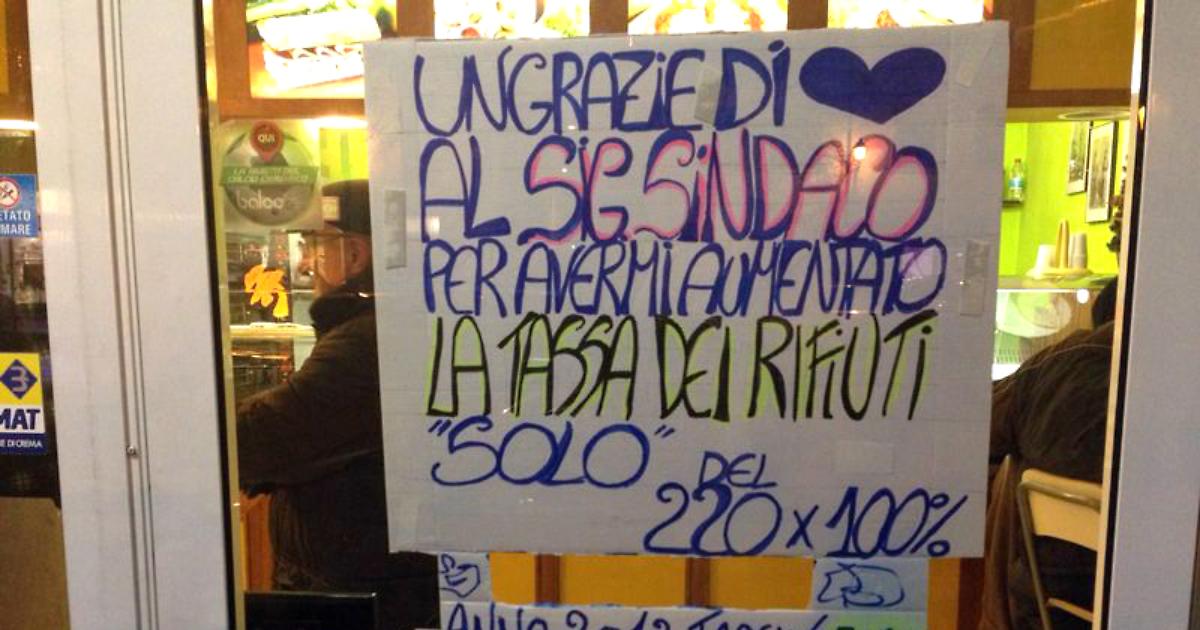 UN GRAZIE DI
AL SIG. SINDACO
PER AVERMI AUMENTATO
LA TASSA DEI RIFIUTI
"SOLO" DEL
220 x 100%
QUI
baloo
ETATO
MARE
3
MAT
E DI CREMA